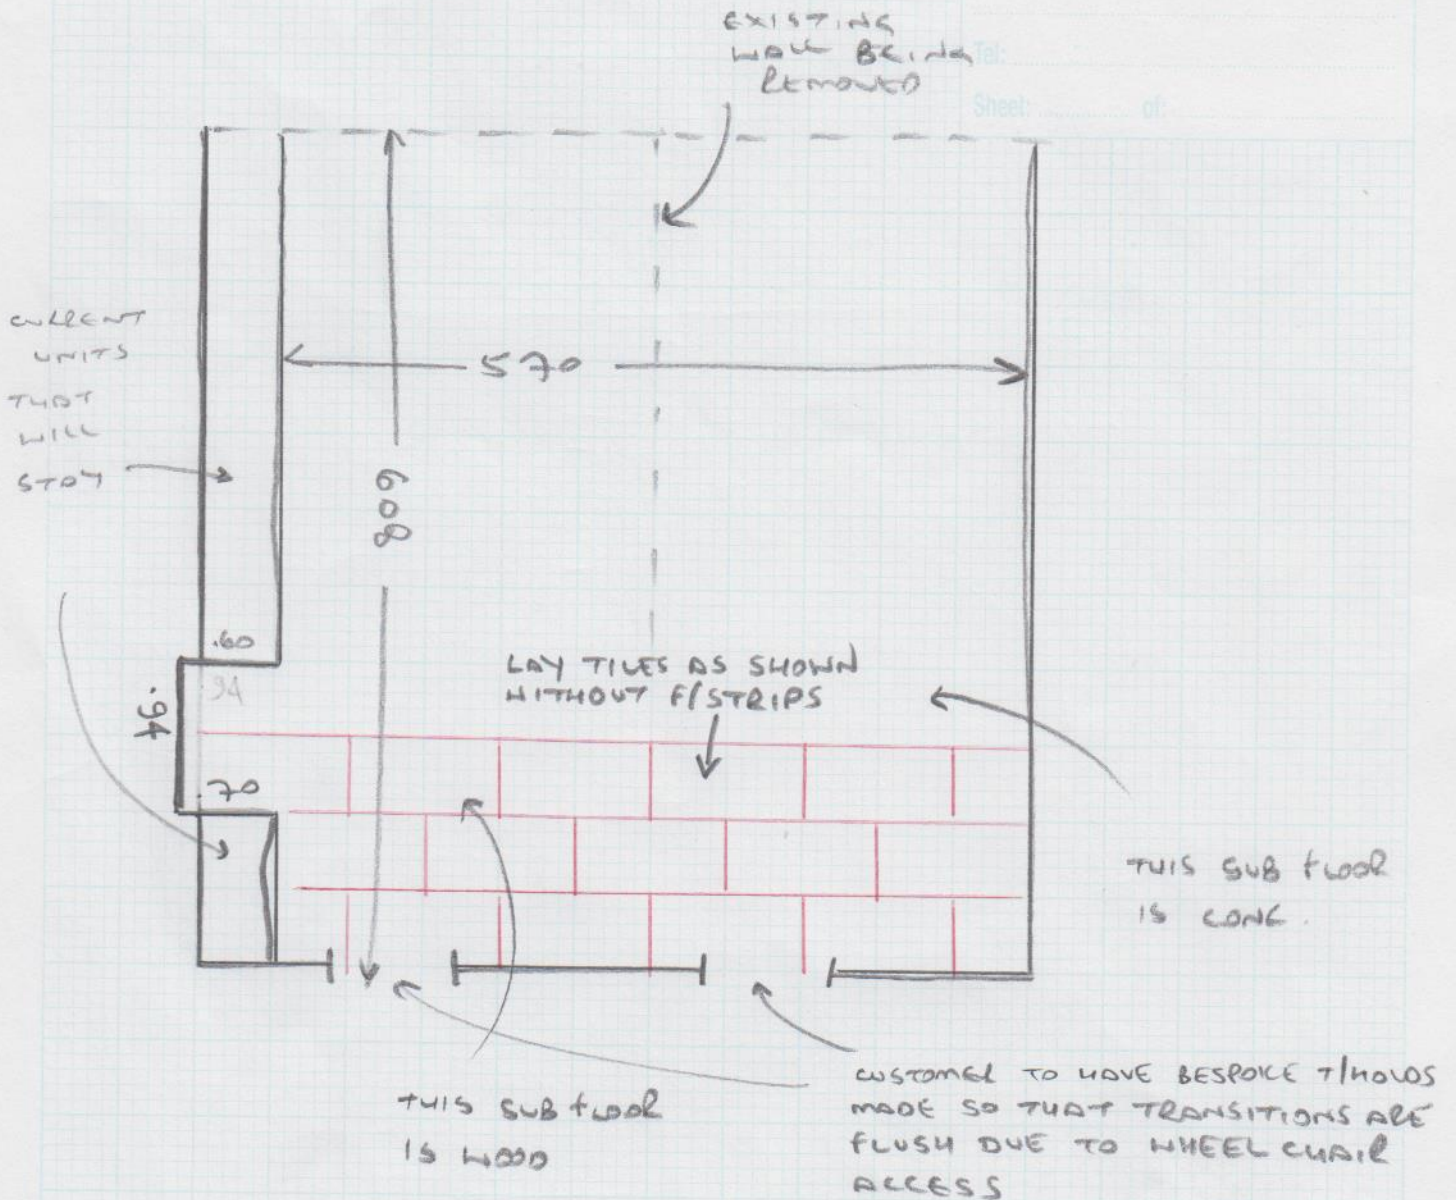 EXISTING
WALL BEING
REMOVED
Tel:
Sheet: of:
CURRENT
UNITS
THAT
WILL
STAY
570
608
.60
.94
.94
.70
LAY TILES AS SHOWN
WITHOUT F/STRIPS
THIS SUB FLOOR
IS CONC.
THIS SUB FLOOR
IS WOOD
CUSTOMER TO HAVE BESPOKE T/HOLDS
MADE SO THAT TRANSITIONS ARE
FLUSH DUE TO WHEEL CHAIR
ACCESS